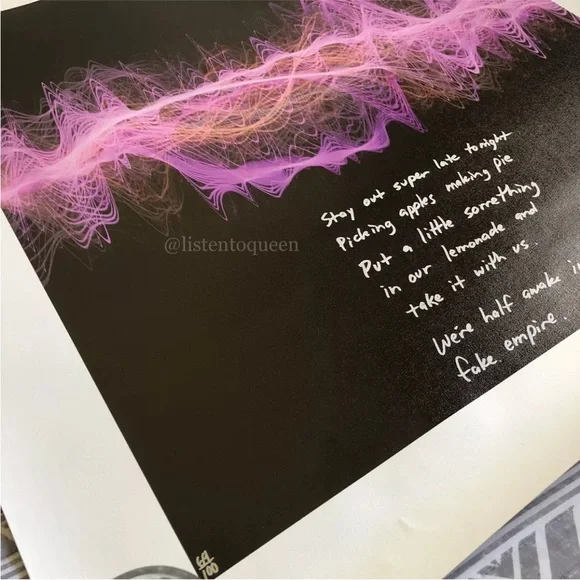 Stay out super late tonight
Picking apples making pie
Put a little something
in our lemonade and
take it with us.
We're half awake i
fake empire.
@listentoqueen
/100